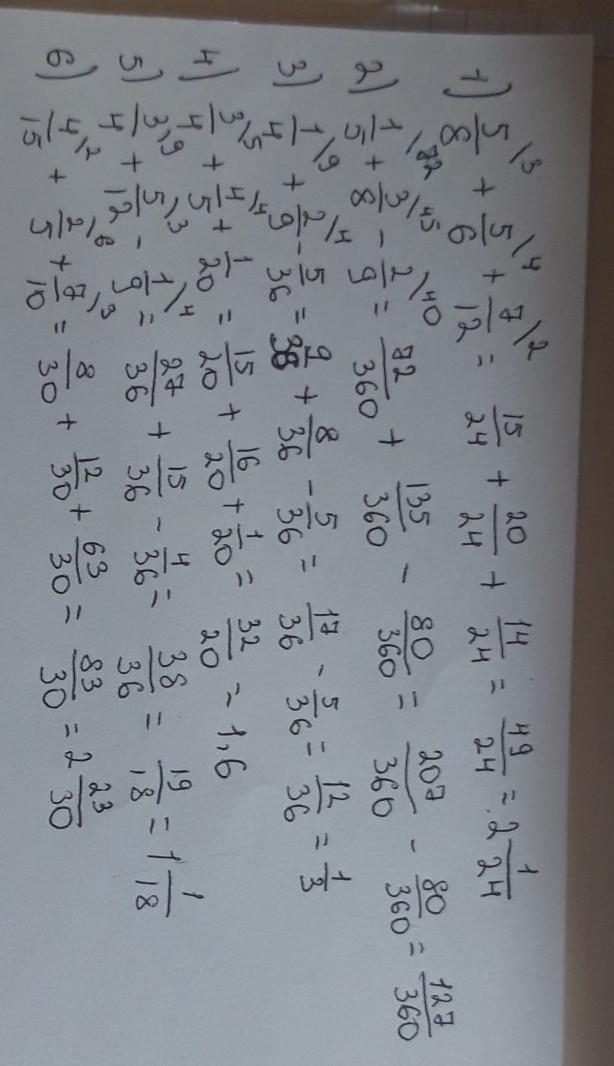 1) 5/8 \3 + 5/6 \4 + 7/12 \2 = 15/24 + 20/24 + 14/24 = 49/24 = 2 1/24
2) 1/5 \72 + 3/8 \45 - 2/9 \40 = 72/360 + 135/360 - 80/360 = 207/360 - 80/360 = 127/360
3) 1/4 \9 + 2/9 \4 - 5/36 = 9/36 + 8/36 - 5/36 = 17/36 - 5/36 = 12/36 = 1/3
4) 3/4 \5 + 4/5 \4 + 1/20 = 15/20 + 16/20 + 1/20 = 32/20 ~ 1,6
5) 3/4 \9 + 5/12 \3 - 1/9 \4 = 27/36 + 15/36 - 4/36 = 38/36 = 19/18 = 1 1/18
6) 4/15 \2 + 2/5 \6 + 7/10 \3 = 8/30 + 12/30 + 63/30 = 83/30 = 2 23/30